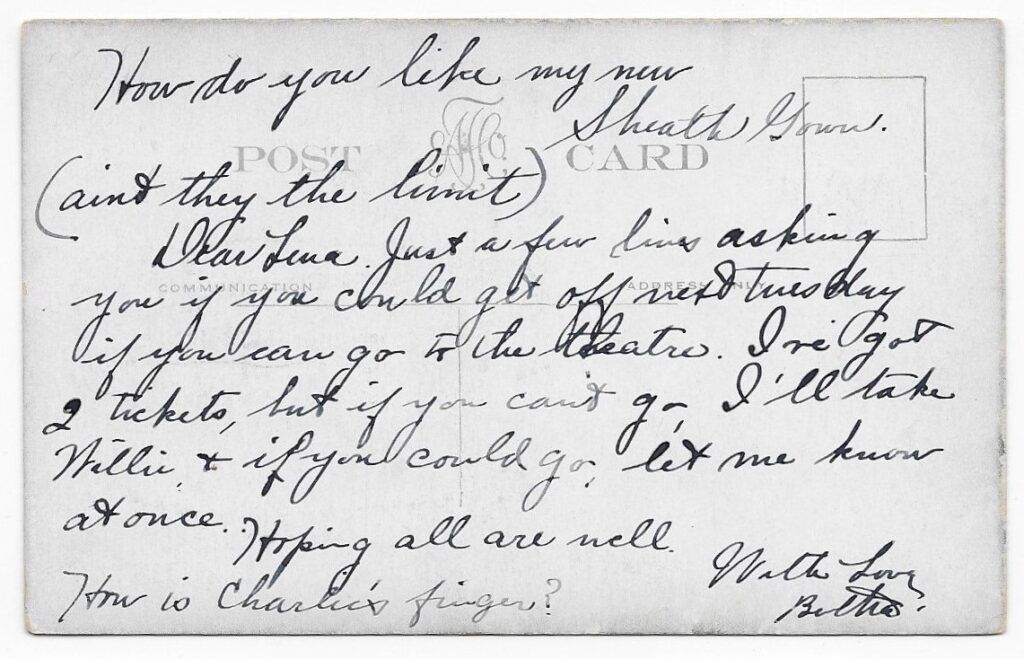 How do you like my new
Sheath Gown.
POST CARD
(aint they the limit)
Dear Lena. Just a few lines asking
COMMUNICATION
ADDRESS ONLY
you if you could get off next tuesday
if you can go to the theatre. I've got
2 tickets, but if you can't go, I'll take
Willie, & if you could go, let me know
at once.
Hoping all are well.
With Love
Bertha.
How is Charlie's finger?